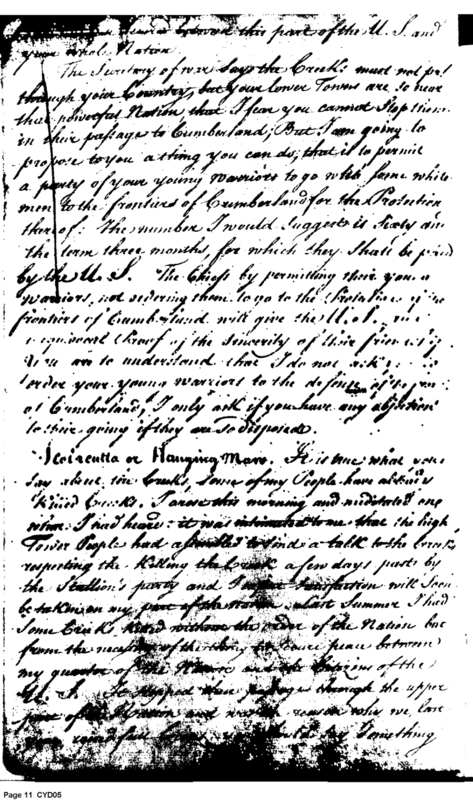 between this part of the U. S. and
your whole Nation.
The Secretary of war Says the Creeks must not pass
through your Country, but your lower Towns are so near
that powerful Nation that I fear you cannot Stop them
in their passage to Cumberland; But I am going to
propose to you a thing you can do; that is to permit
a party of your young warriors to go with some white
men to the frontiers of Cumberland for the Protection
thereof: the number I would suggest is Sixty and
the term three months, for which they Shall be paid
by the U. S. The Chiefs by permitting their young
warriors, not ordering them to go to the Protection of the
frontiers of Cumberland will give the U. S.
unequivocal Proof of the Sincerity of their friendship
You are to understand that I do not ask
order your young warriors to the defense of
of Cumberland, I only ask if you have any objection
to their going if they are So disposed.
Scolacutta or Hanging Maw. It is true what you
Say about the Creeks, Some of my People have always
killed Creeks. I arose this morning and meditated on
what I had heard: it was intimated to me that the high
Tower People had assembled to send a talk to the Creeks
respecting the killing the Creek a few days past by
the Stallion's party and Satisfaction will Soon
be taken on my part of the Nation. Last Summer I had
Some Creeks killed without the order of the Nation but
from the necessity of the thing to secure peace between
my quarter of the Nation and the Citizens of the
U. S. It Stopped their passage through the upper
part of the Nation and reason why we
Something
Page 11 CYD05